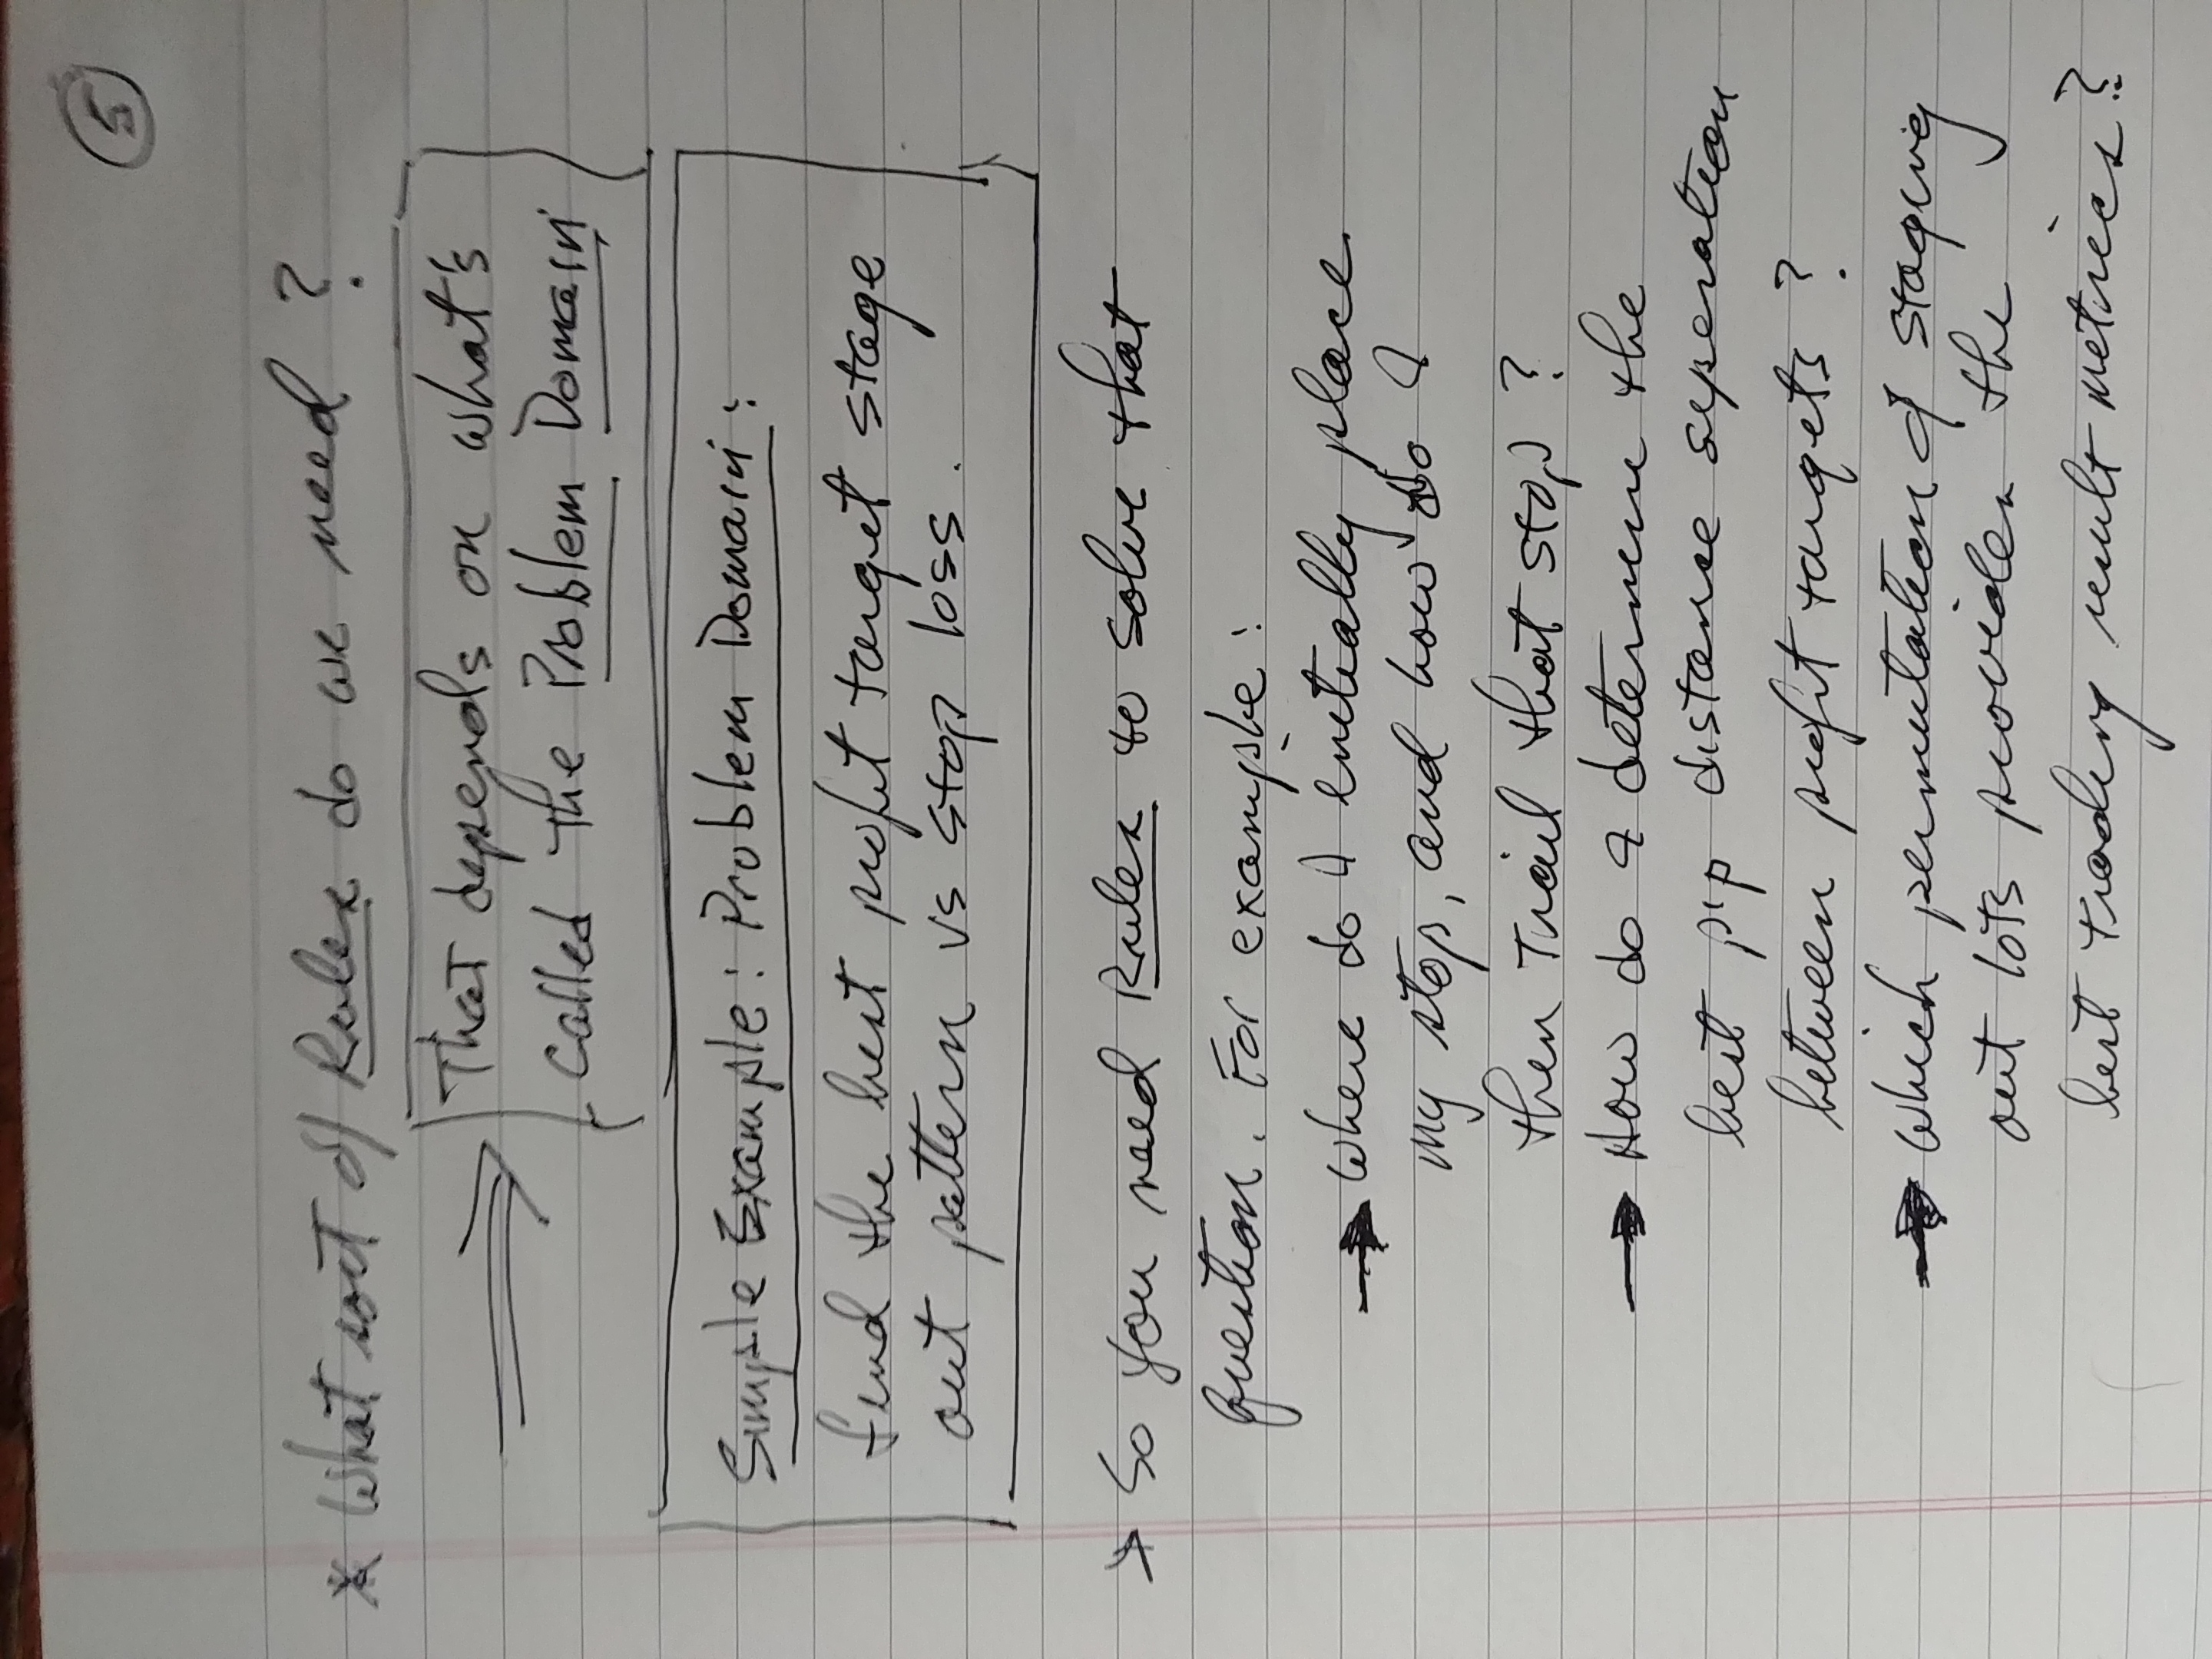 5
* What sort of Rules do we need ?
That depends on what's
called the Problem Domain
Simple Example: Problem Domain:
find the best profit target stage
out pattern vs stop loss.
> So you need Rules to solve that
question. For example:
Where do I initially place
my stop, and how do I
then trail that stop ?
How do I determine the
best pip distance seperation
between profit targets ?
Which permutation of staging
out lots provides the
best trading result metrics ?